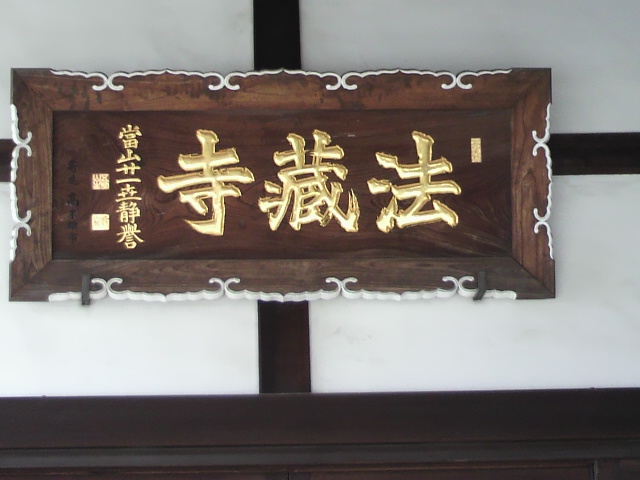 法藏寺
當山廿一世靜譽